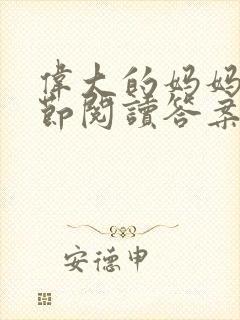 偉大的妈妈
節閱讀答案
安德申